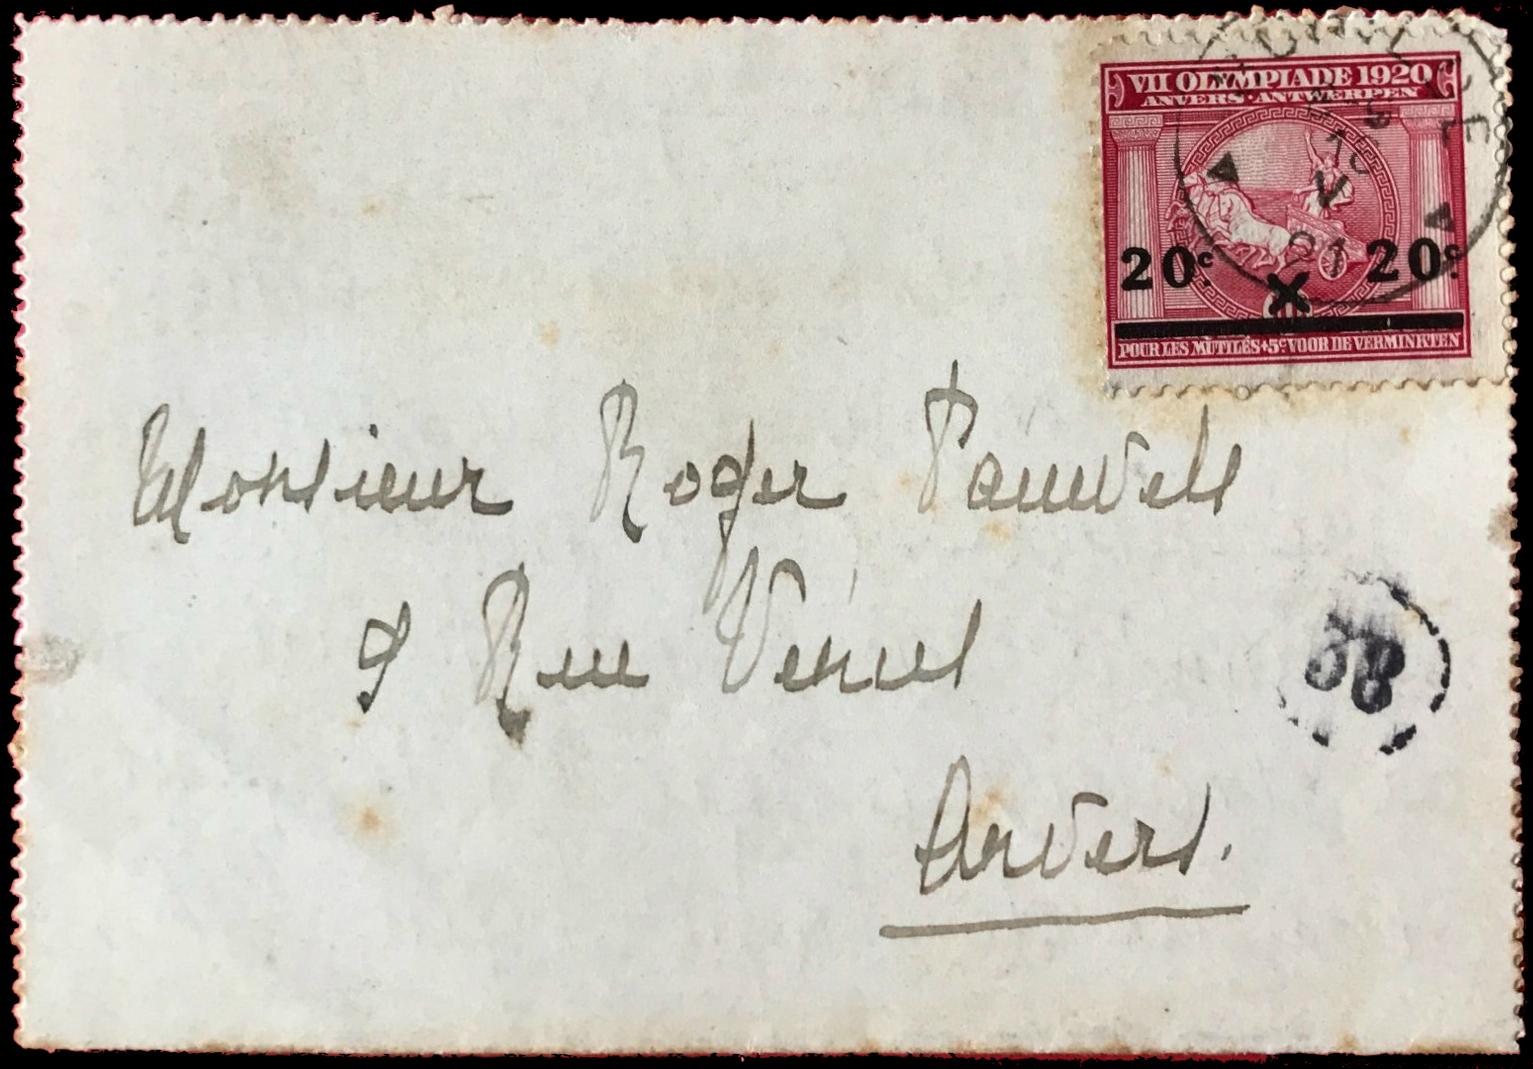 VII OLYMPIADE 1920
ANVERS · ANTWERPEN
20c 20c
POUR LES MUTILÉS+5c VOOR DE VERMINKTEN
21
Monsieur Roger Pauwels
9 Rue Vénus
Anvers.